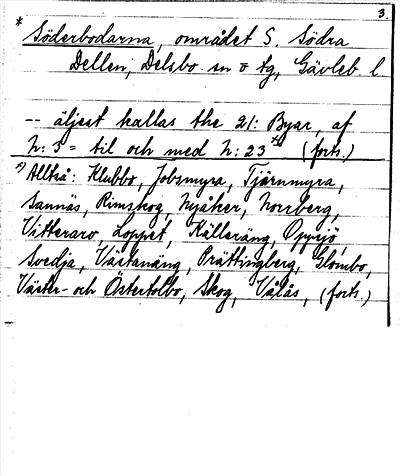 3.
* Söderbodarna, området S. Södra
Dellen, Delsbo sn o tg, Gävleb l.
-- äljest kallas the 21: Byar, af
N: 3 = til och med N: 23 x) (forts.)
x) Alltså: Klubbo, Jobsmyra, Tjärnmyra,
Sannäs, Rimskog, Nyåker, Norrberg,
Vitteraro Loppet, Källeräng, Oppsjö,
Svedja, Västanäng, Prättingberg, Glombo,
Väster- och Östertolbo, Skog, Vålås, (forts.)